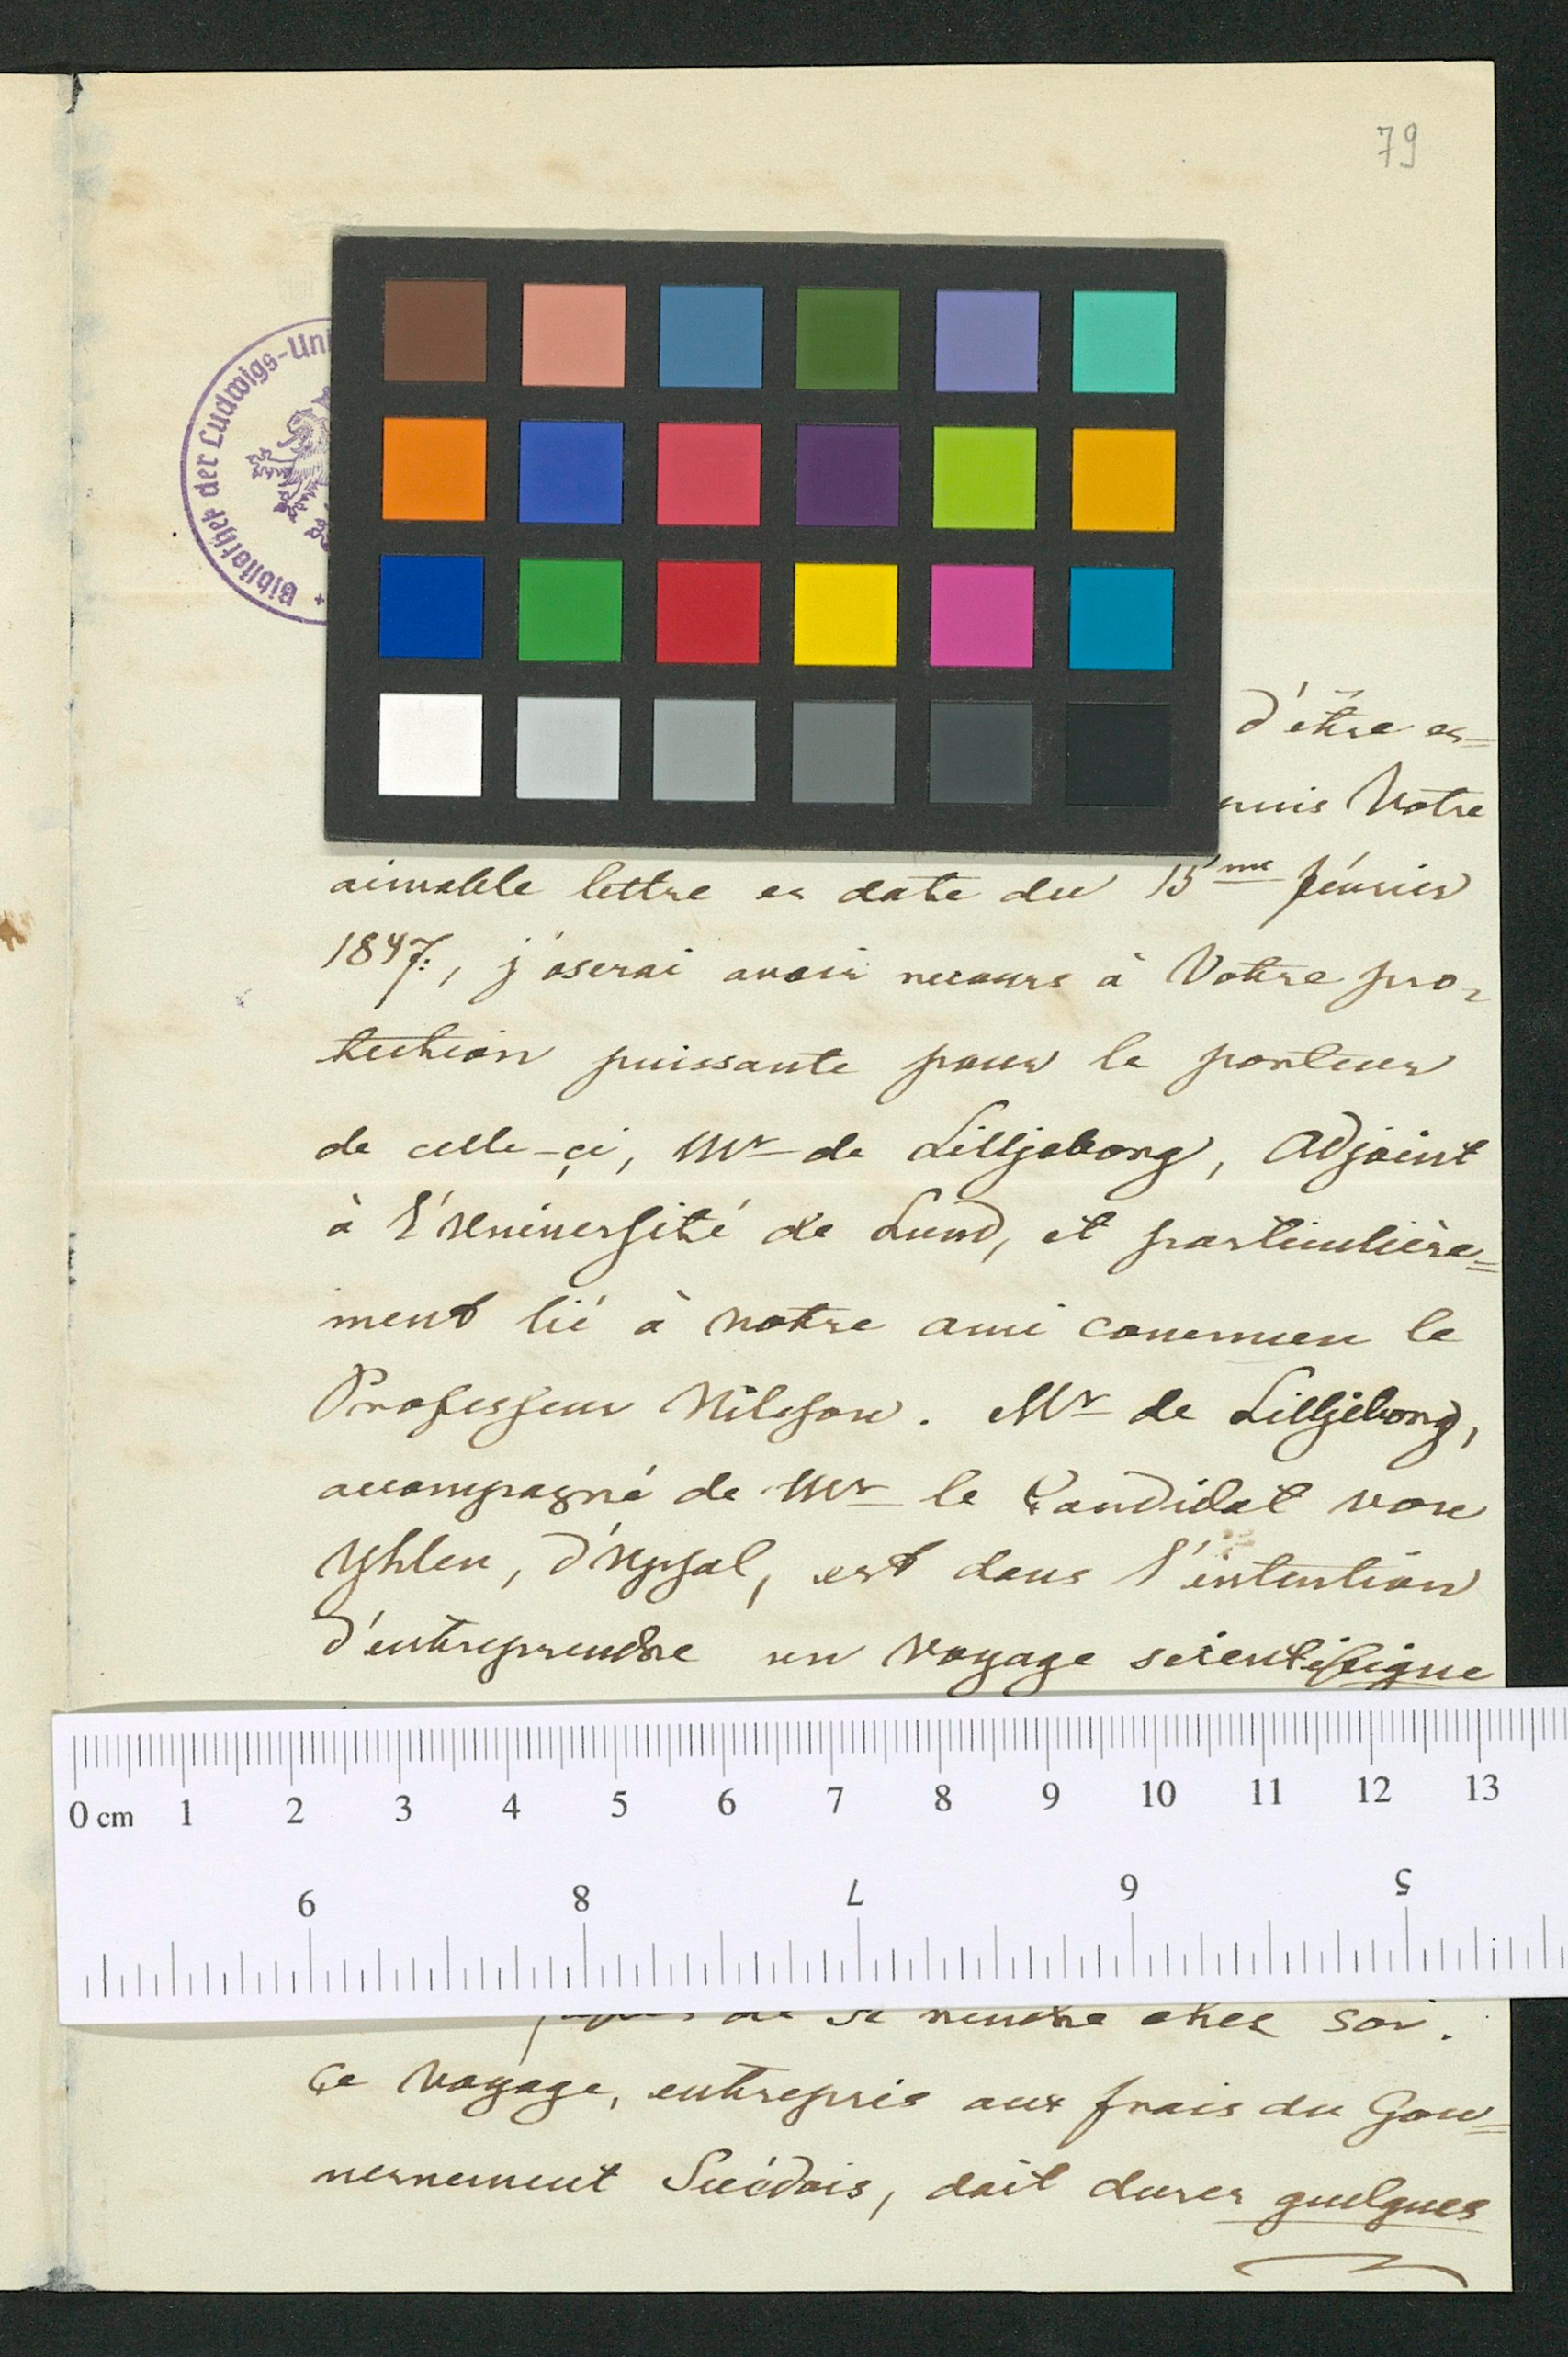 79
Bibliothek der Ludwigs-Uni
d'être en=
Votre
aimable lettre en date du 15me février
1847., j'oserai avoir recours à Votre pro=
tection puissante pour le porteur
de celle-çi, Mr de Lilljeborg, Adjoint
à l'Université de Lund, et particulière=
ment lié à notre ami commun le
Professeur Nilsson. Mr de Lilljeborg,
accompagné de Mr le Candidat von
Yhlen, d'Upsal, est dans l'intention
d'entreprendre un voyage scientifique
0 cm 1 2 3 4 5 6 7 8 9 10 11 12 13
9 8 7 6 5
de se rendre chez soi.
Ce voyage, entrepris aux frais du Gou=
vernement Suédois, doit durer quelques